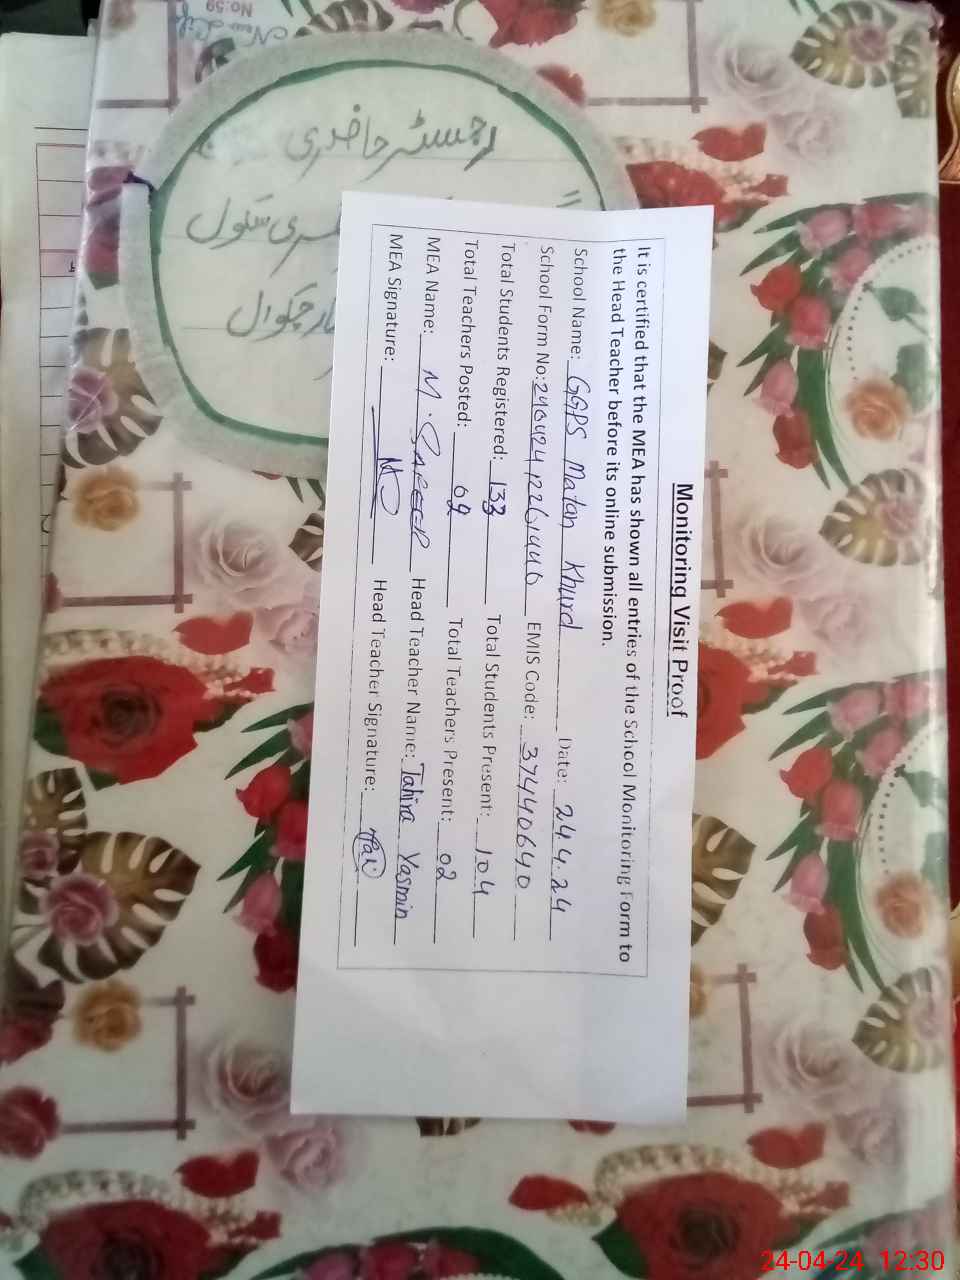 No:59
New Life
رجسٹر حاضری
سکول
چکوال
Monitoring Visit Proof
It is certified that the MEA has shown all entries of the School Monitoring Form to
the Head Teacher before its online submission.
School Name: GGPS Matan Khurd Date: 24.4.24
School Form No: EMIS Code: 37440640
Total Students Registered: 133 Total Students Present: 104
Total Teachers Posted: 02 Total Teachers Present: 02
MEA Name: M. Head Teacher Name: Tahira Yasmin
MEA Signature: Head Teacher Signature:
24-04-24 12:30